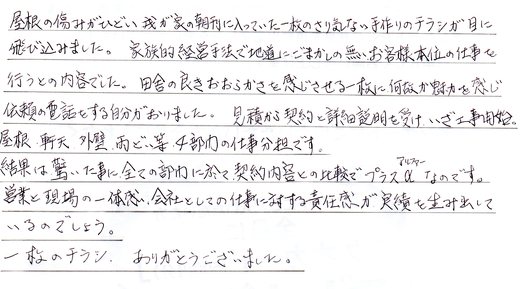 屋根の傷みがひどい我が家の朝刊に入っていた一枚のさり気ない手作りのチラシが目に
飛び込みました。家族的経営手法で地道にごまかしの無いお客様本位の仕事を
行うとの内容でした。田舎の良きおおらかさを感じさせる一枚に何故か魅力を感じ
依頼の電話をする自分がおりました。見積から契約と詳細説明を受け、いざ工事開始。
屋根、軒天、外壁、雨どい等4部門の仕事分担です。
アルファー
結果は驚いた事に全ての部門に於て契約内容との比較でプラスαなのです。
営業と現場の一体感、会社としての仕事に対する責任感が実績を生み出して
いるのでしょう。
一枚のチラシ、ありがとうございました。